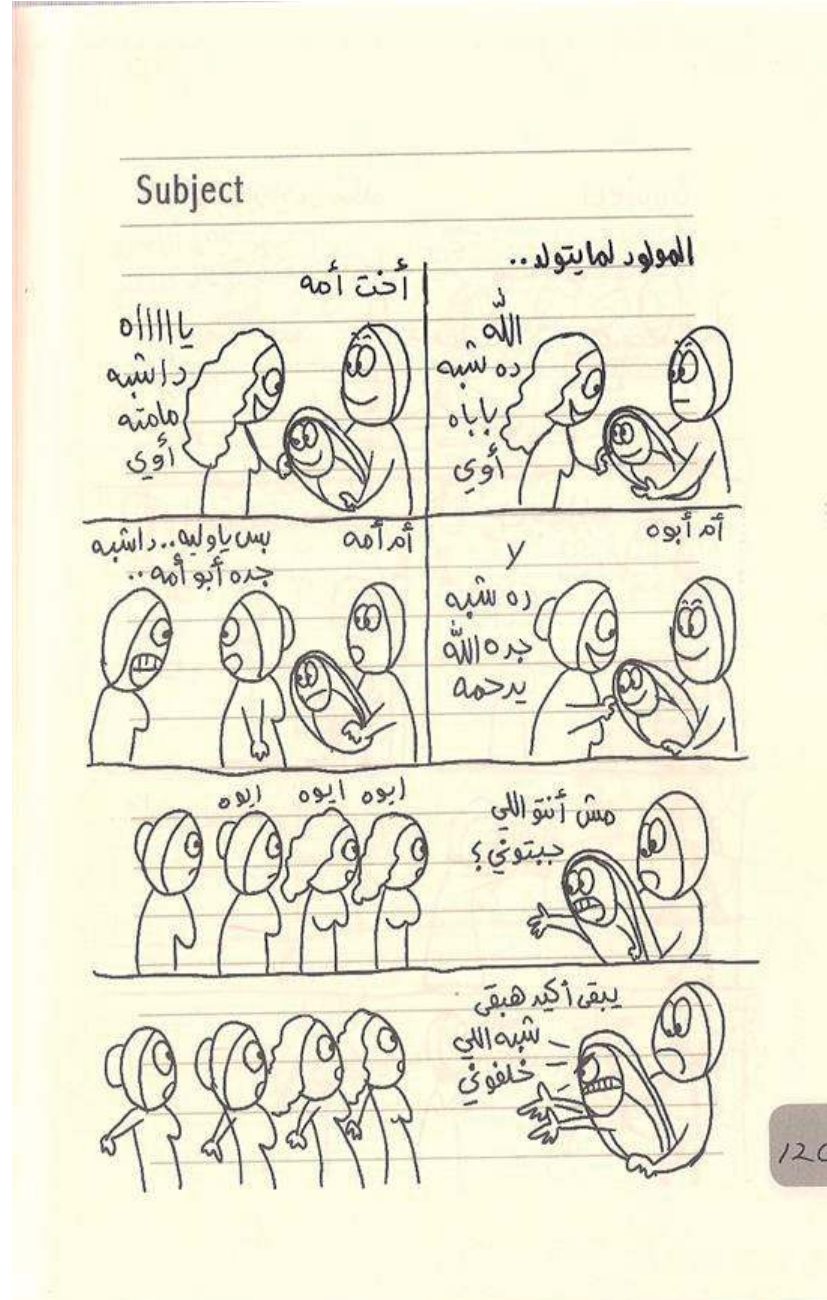 Subject
المولود لما يتولد..
الله
ده شبه
باباه
أوي
أخت أمه
يااااااه
دا شبه
مامته
أوي
أم أبوه
لا
ده شبه
جده الله
يرحمه
أم أمه
بس يا وليه.. دا شبه
جده أبو أمه..
مش أنتو اللي
جبتوني؟
ايوه ايوه ايوه
يبقى أكيد هبقى
شبه اللي
خلفوني
120